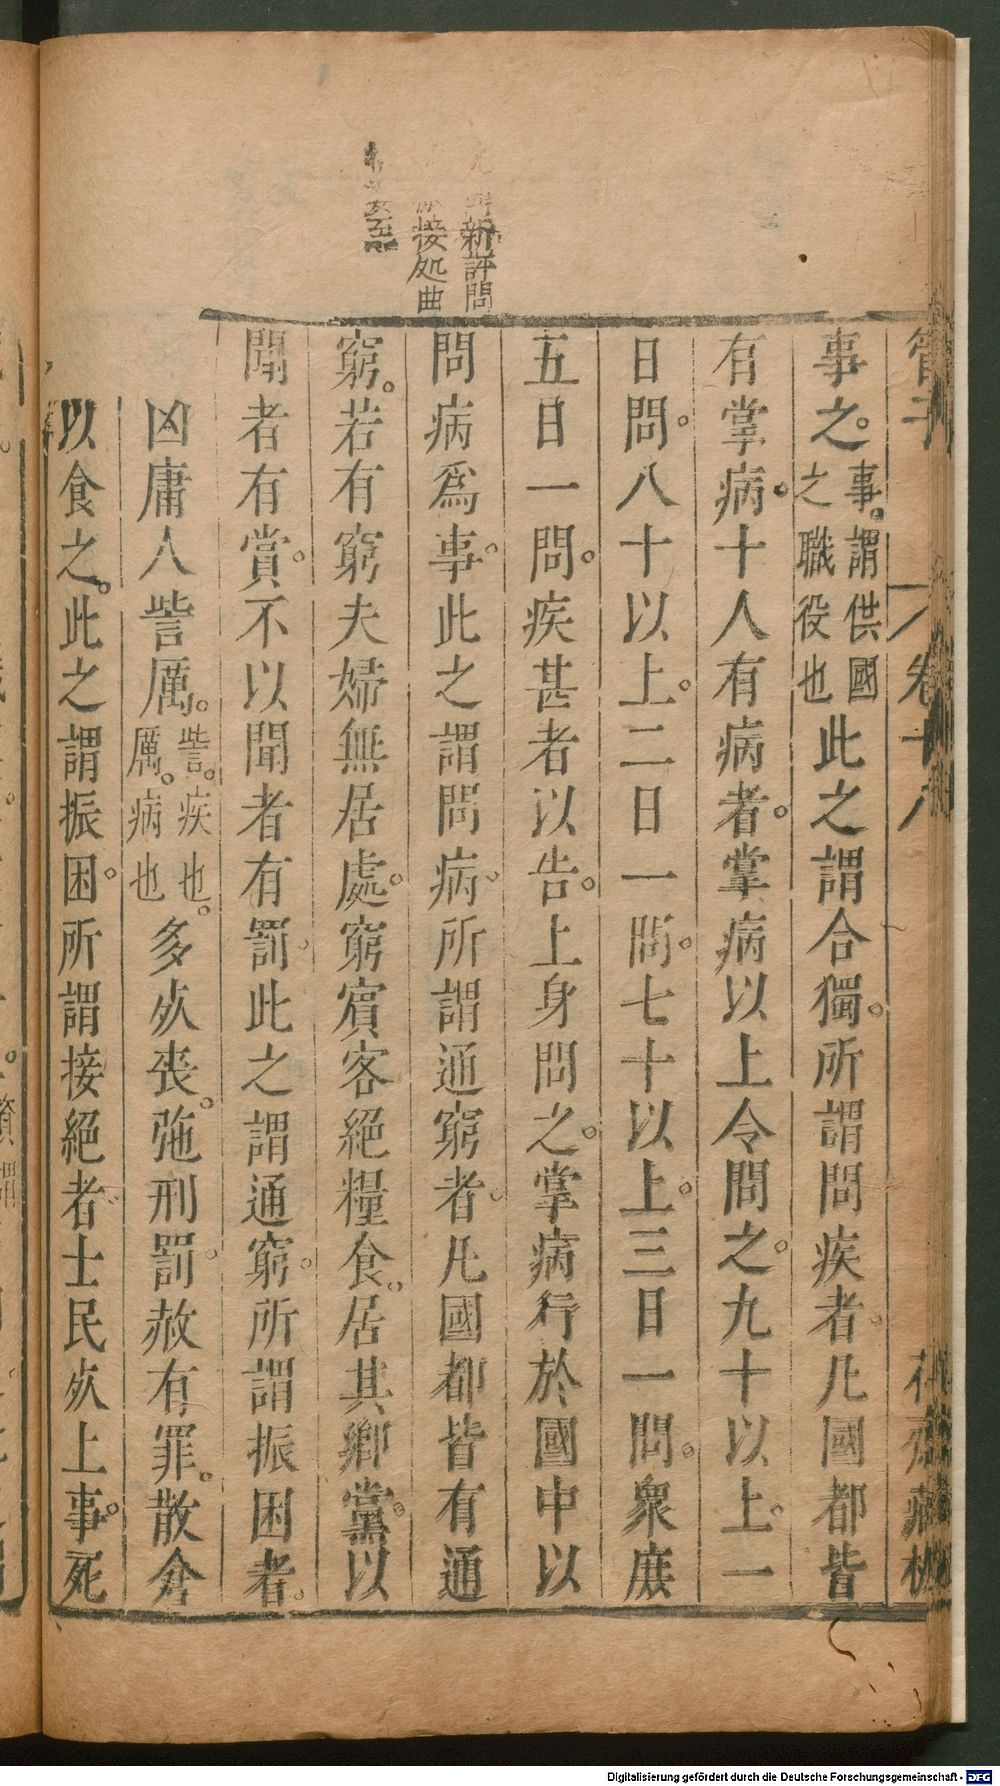 管子 卷十八 花齋藏板
事之。事。謂供國之職役也此之謂合獨。所謂問疾者。凡國都皆
有掌病。士人有病者。掌病以上令問之。九十以上。一
日問。八十以上。二日一問。七十以上。三日一問。衆庶
五日一問。疾甚者以告。上身問之。掌病行於國中以
問病爲事。此之謂問病。所謂通窮者。凡國都皆有通
窮。若有窮夫婦無居處。窮賓客絕糧食。居其鄉黨。以
聞者有賞。不以聞者有罰。此之謂通窮。所謂振困者。
凶庸人訾厲。訾。疾也。厲。病也多夾喪。弛刑罰。赦有罪。散倉
以食之。此之謂振困。所謂接絕者士民夾上事。死
新評問
接処曲